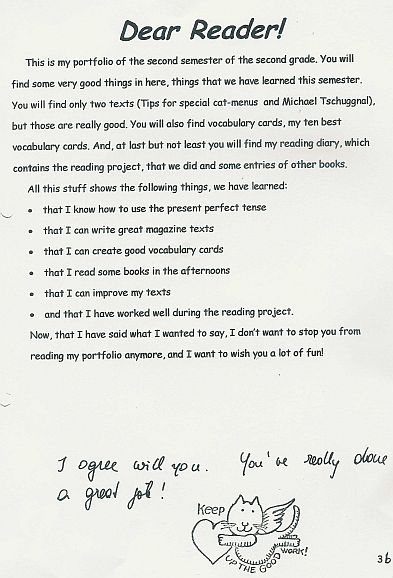 Dear Reader!
This is my portfolio of the second semester of the second grade. You will
find some very good things in here, things that we have learned this semester.
You will find only two texts (Tips for special cat-menus and Michael Tschuggnal),
but those are really good. You will also find vocabulary cards, my ten best
vocabulary cards. And, at last but not least you will find my reading diary, which
contains the reading project, that we did and some entries of other books.
All this stuff shows the following things, we have learned:
• that I know how to use the present perfect tense
• that I can write great magazine texts
• that I can create good vocabulary cards
• that I read some books in the afternoons
• that I can improve my texts
• and that I have worked well during the reading project.
Now, that I have said what I wanted to say, I don't want to stop you from
reading my portfolio anymore, and I want to wish you a lot of fun!
I agree will you. You've really done
a great job!
Keep
UP THE GOOD WORK!
3b